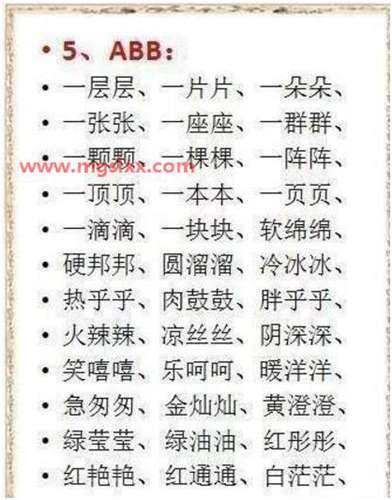 5、ABB：
一层层、一片片、一朵朵、
一张张、一座座、一群群、
一颗颗、一棵棵、一阵阵、
www.mgslxx.com
一顶顶、一本本、一页页、
一滴滴、一块块、软绵绵、
硬邦邦、圆溜溜、冷冰冰、
热乎乎、肉鼓鼓、胖乎乎、
火辣辣、凉丝丝、阴深深、
笑嘻嘻、乐呵呵、暖洋洋、
急匆匆、金灿灿、黄澄澄、
绿莹莹、绿油油、红彤彤、
红艳艳、红通通、白茫茫、